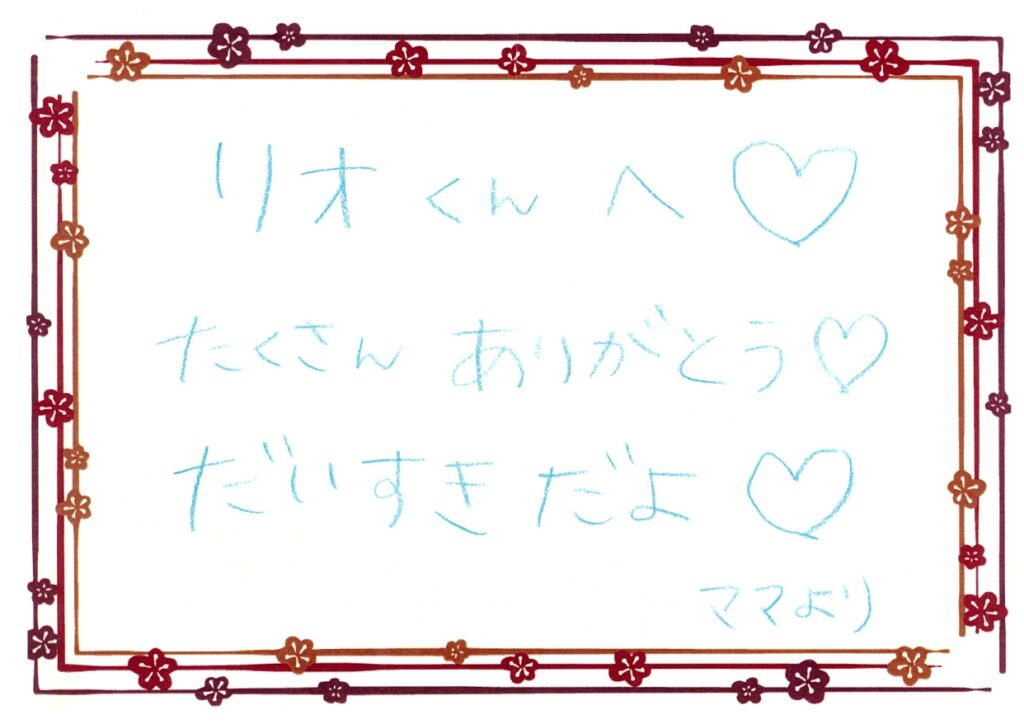 リオくんへ♡
たくさんありがとう♡
だいすきだよ♡
ママより